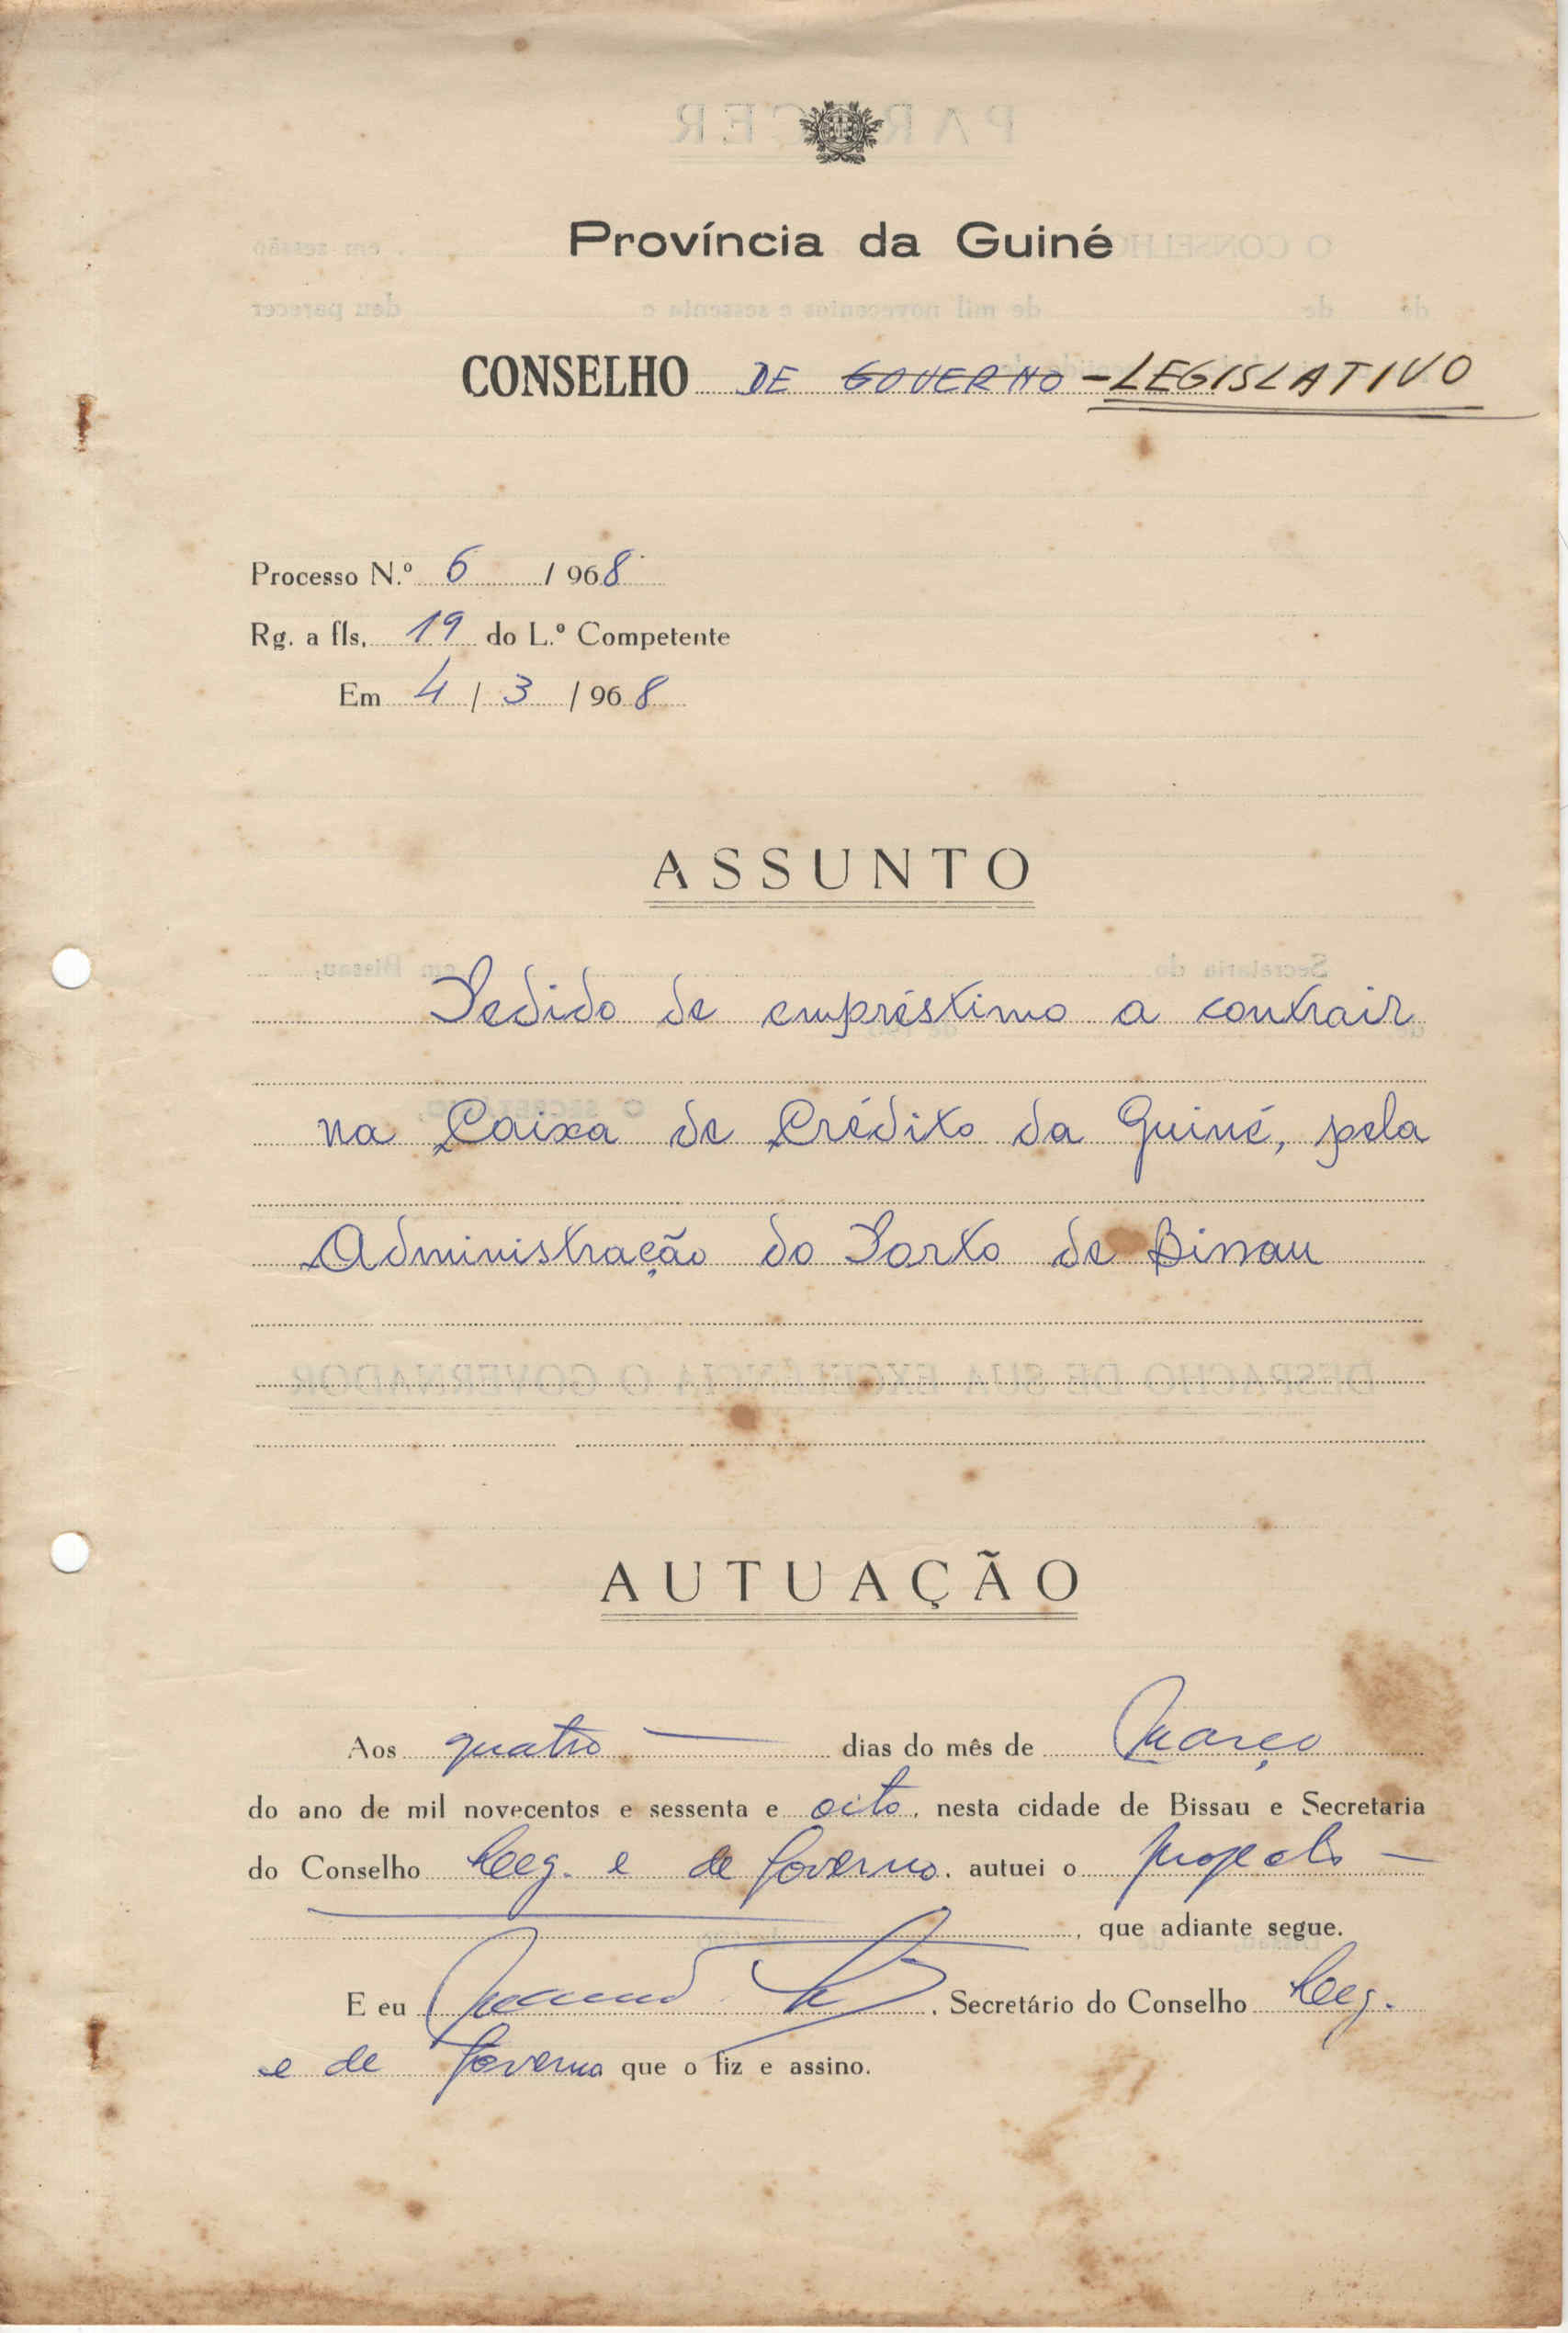 Província da Guiné
CONSELHO DE GOVERNO - LEGISLATIVO
Processo N.º 6 / 968
Rg. a fls. 19 do L.º Competente
Em 4 / 3 / 968
ASSUNTO
Pedido de empréstimo a contrair
na Caixa de Crédito da Guiné, pela
Administração do Porto de Bissau
AUTUAÇÃO
Aos quatro — dias do mês de Março
do ano de mil novecentos e sessenta e oito, nesta cidade de Bissau e Secretaria
do Conselho Leg. e de Governo, autuei o —
, que adiante segue.
E eu , Secretário do Conselho Leg.
e de Governo que o fiz e assino.